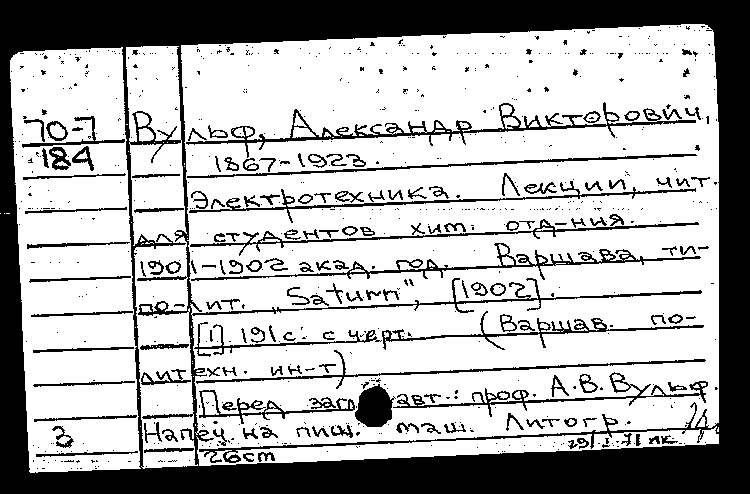 70-7 Вульф, Александр Викторович,
184 1867-1923.
Электротехника. Лекции, чит.
для студентов хим. отд-ния.
1901-1902 акад. год. Варшава, ти-
по-лит. „Saturn", [1902].
[1], 191 с. с черт. (Варшав. по-
литехн. ин-т)
Перед загл. авт.: проф. А.В. Вульф.
3 Напеч на пиш. маш. Литогр.
26cm